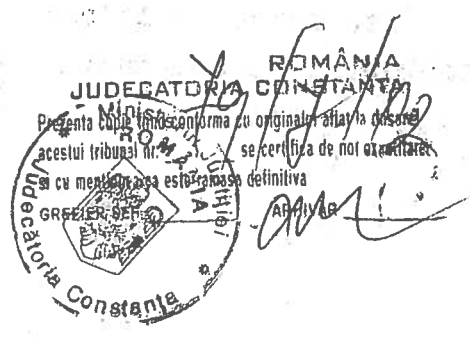 ROMÂNIA
JUDECATORIA CONSTANTA
Prezenta copie fiind conforma cu originalul aflat la dosarul
acestui tribunal nr. se certifica de noi
si cu mentiunea ca este ramasa definitiva
GREFIER SEF
ARHIVAR
Ministerul Justitiei
ROMANIA
Judecătoria Constanta